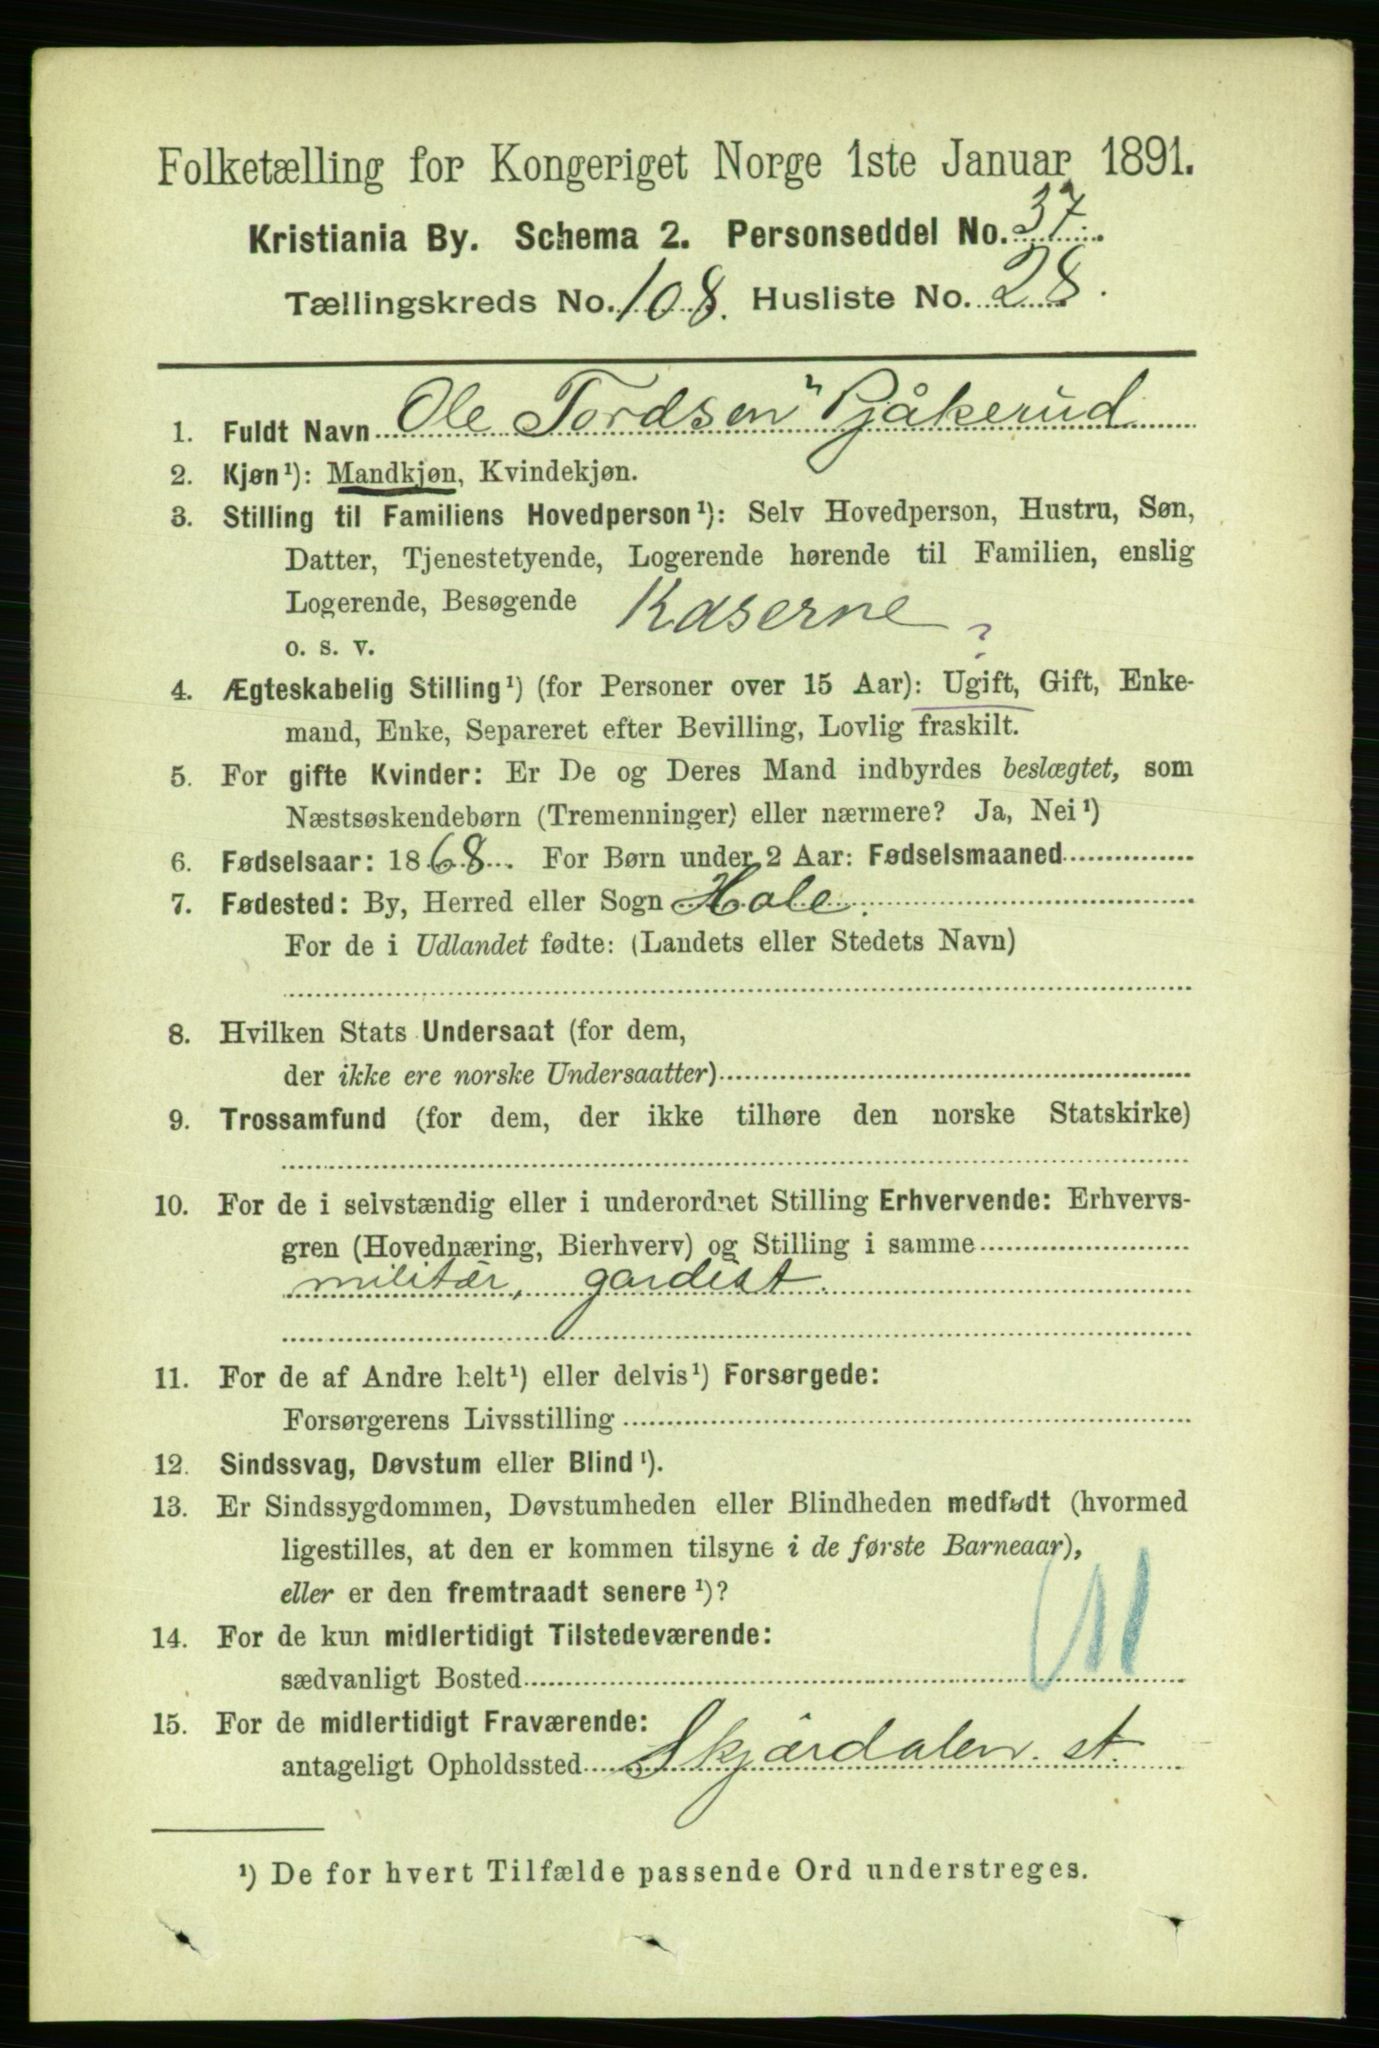 Folketælling for Kongeriget Norge 1ste Januar 1891.
Kristiania By. Schema 2. Personseddel No. 37.
Tællingskreds No. 108. Husliste No. 28.
1. Fuldt Navn Ole Tordsen "Pjåkerud
2. Kjøn¹): Mandkjøn, Kvindekjøn.
3. Stilling til Familiens Hovedperson¹): Selv Hovedperson, Hustru, Søn,
Datter, Tjenestetyende, Logerende hørende til Familien, enslig
Logerende, Besøgende Kaserne
o. s. v. ?
4. Ægteskabelig Stilling¹) (for Personer over 15 Aar): Ugift, Gift, Enke-
mand, Enke, Separeret efter Bevilling, Lovlig fraskilt.
5. For gifte Kvinder: Er De og Deres Mand indbyrdes beslægtet, som
Næstsøskendebørn (Tremenninger) eller nærmere? Ja, Nei¹)
6. Fødselsaar: 1868. For Børn under 2 Aar: Fødselsmaaned
7. Fødested: By, Herred eller Sogn Hole.
For de i Udlandet fødte: (Landets eller Stedets Navn)
8. Hvilken Stats Undersaat (for dem,
der ikke ere norske Undersaatter)
9. Trossamfund (for dem, der ikke tilhøre den norske Statskirke)
10. For de i selvstændig eller i underordnet Stilling Erhvervende: Erhvervs-
gren (Hovednæring, Bierhverv) og Stilling i samme
militær, gardist.
11. For de af Andre helt¹) eller delvis¹) Forsørgede:
Forsørgerens Livsstilling
12. Sindssvag, Døvstum eller Blind¹).
13. Er Sindssygdommen, Døvstumheden eller Blindheden medfødt (hvormed
ligestilles, at den er kommen tilsyne i de første Barneaar),
eller er den fremtraadt senere¹)?
14. For de kun midlertidigt Tilstedeværende:
sædvanligt Bosted
15. For de midlertidigt Fraværende:
antageligt Opholdssted Skjærdalen. st.
¹) De for hvert Tilfælde passende Ord understreges.